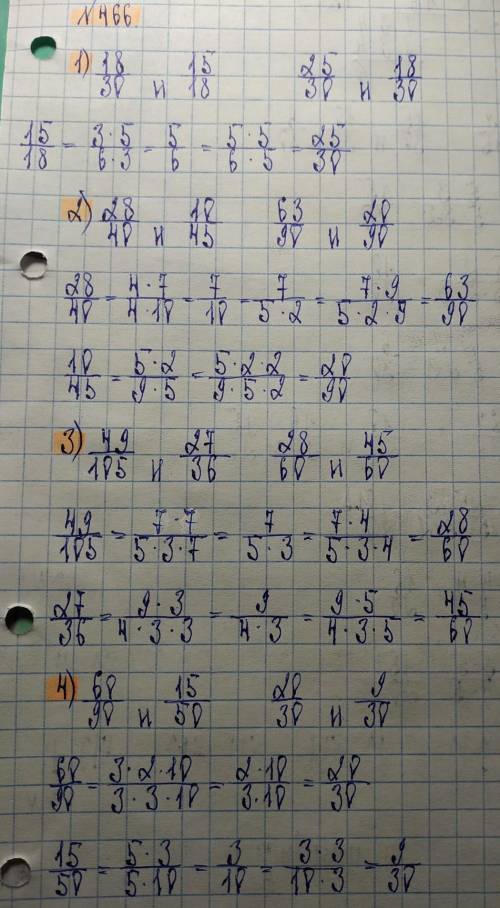 №466.
1) 18/30 и 15/18 25/30 и 18/30
15/18 = 3·5/6·3 = 5/6 = 5·5/6·5 = 25/30
2) 28/40 и 10/45 63/90 и 20/90
28/40 = 4·7/4·10 = 7/10 = 7/5·2 = 7·9/5·2·9 = 63/90
10/45 = 5·2/9·5 = 5·2·2/9·5·2 = 20/90
3) 49/105 и 27/36 28/60 и 45/60
49/105 = 7·7/5·3·7 = 7/5·3 = 7·4/5·3·4 = 28/60
27/36 = 9·3/4·3·3 = 9/4·3 = 9·5/4·3·5 = 45/60
4) 60/90 и 15/50 20/30 и 9/30
60/90 = 3·2·10/3·3·10 = 2·10/3·10 = 20/30
15/50 = 5·3/5·10 = 3/10 = 3·3/10·3 = 9/30